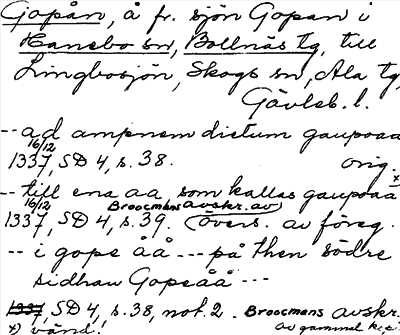 Gopån, å fr. sjön Gopan i
Hanebo sn, Bollnäs tg, till
Lingbosjön, Skogs sn, Ala tg,
Gävleb. l.
-- ad ampnem dictum gaupoaa
16/12
1337, SD 4, s. 38. orig.
x)
-- till ena aa, som kallas gaupoaa
16/12 Broocmans avskr. av
1337, SD 4, s. 39. (Övers. av föreg.
-- i gope åå --- på then södre
sidhan Gopeåå ---
1337, SD 4, s. 38, not. 2. Broocmans avskr.
x) vänd! av gammal kop.